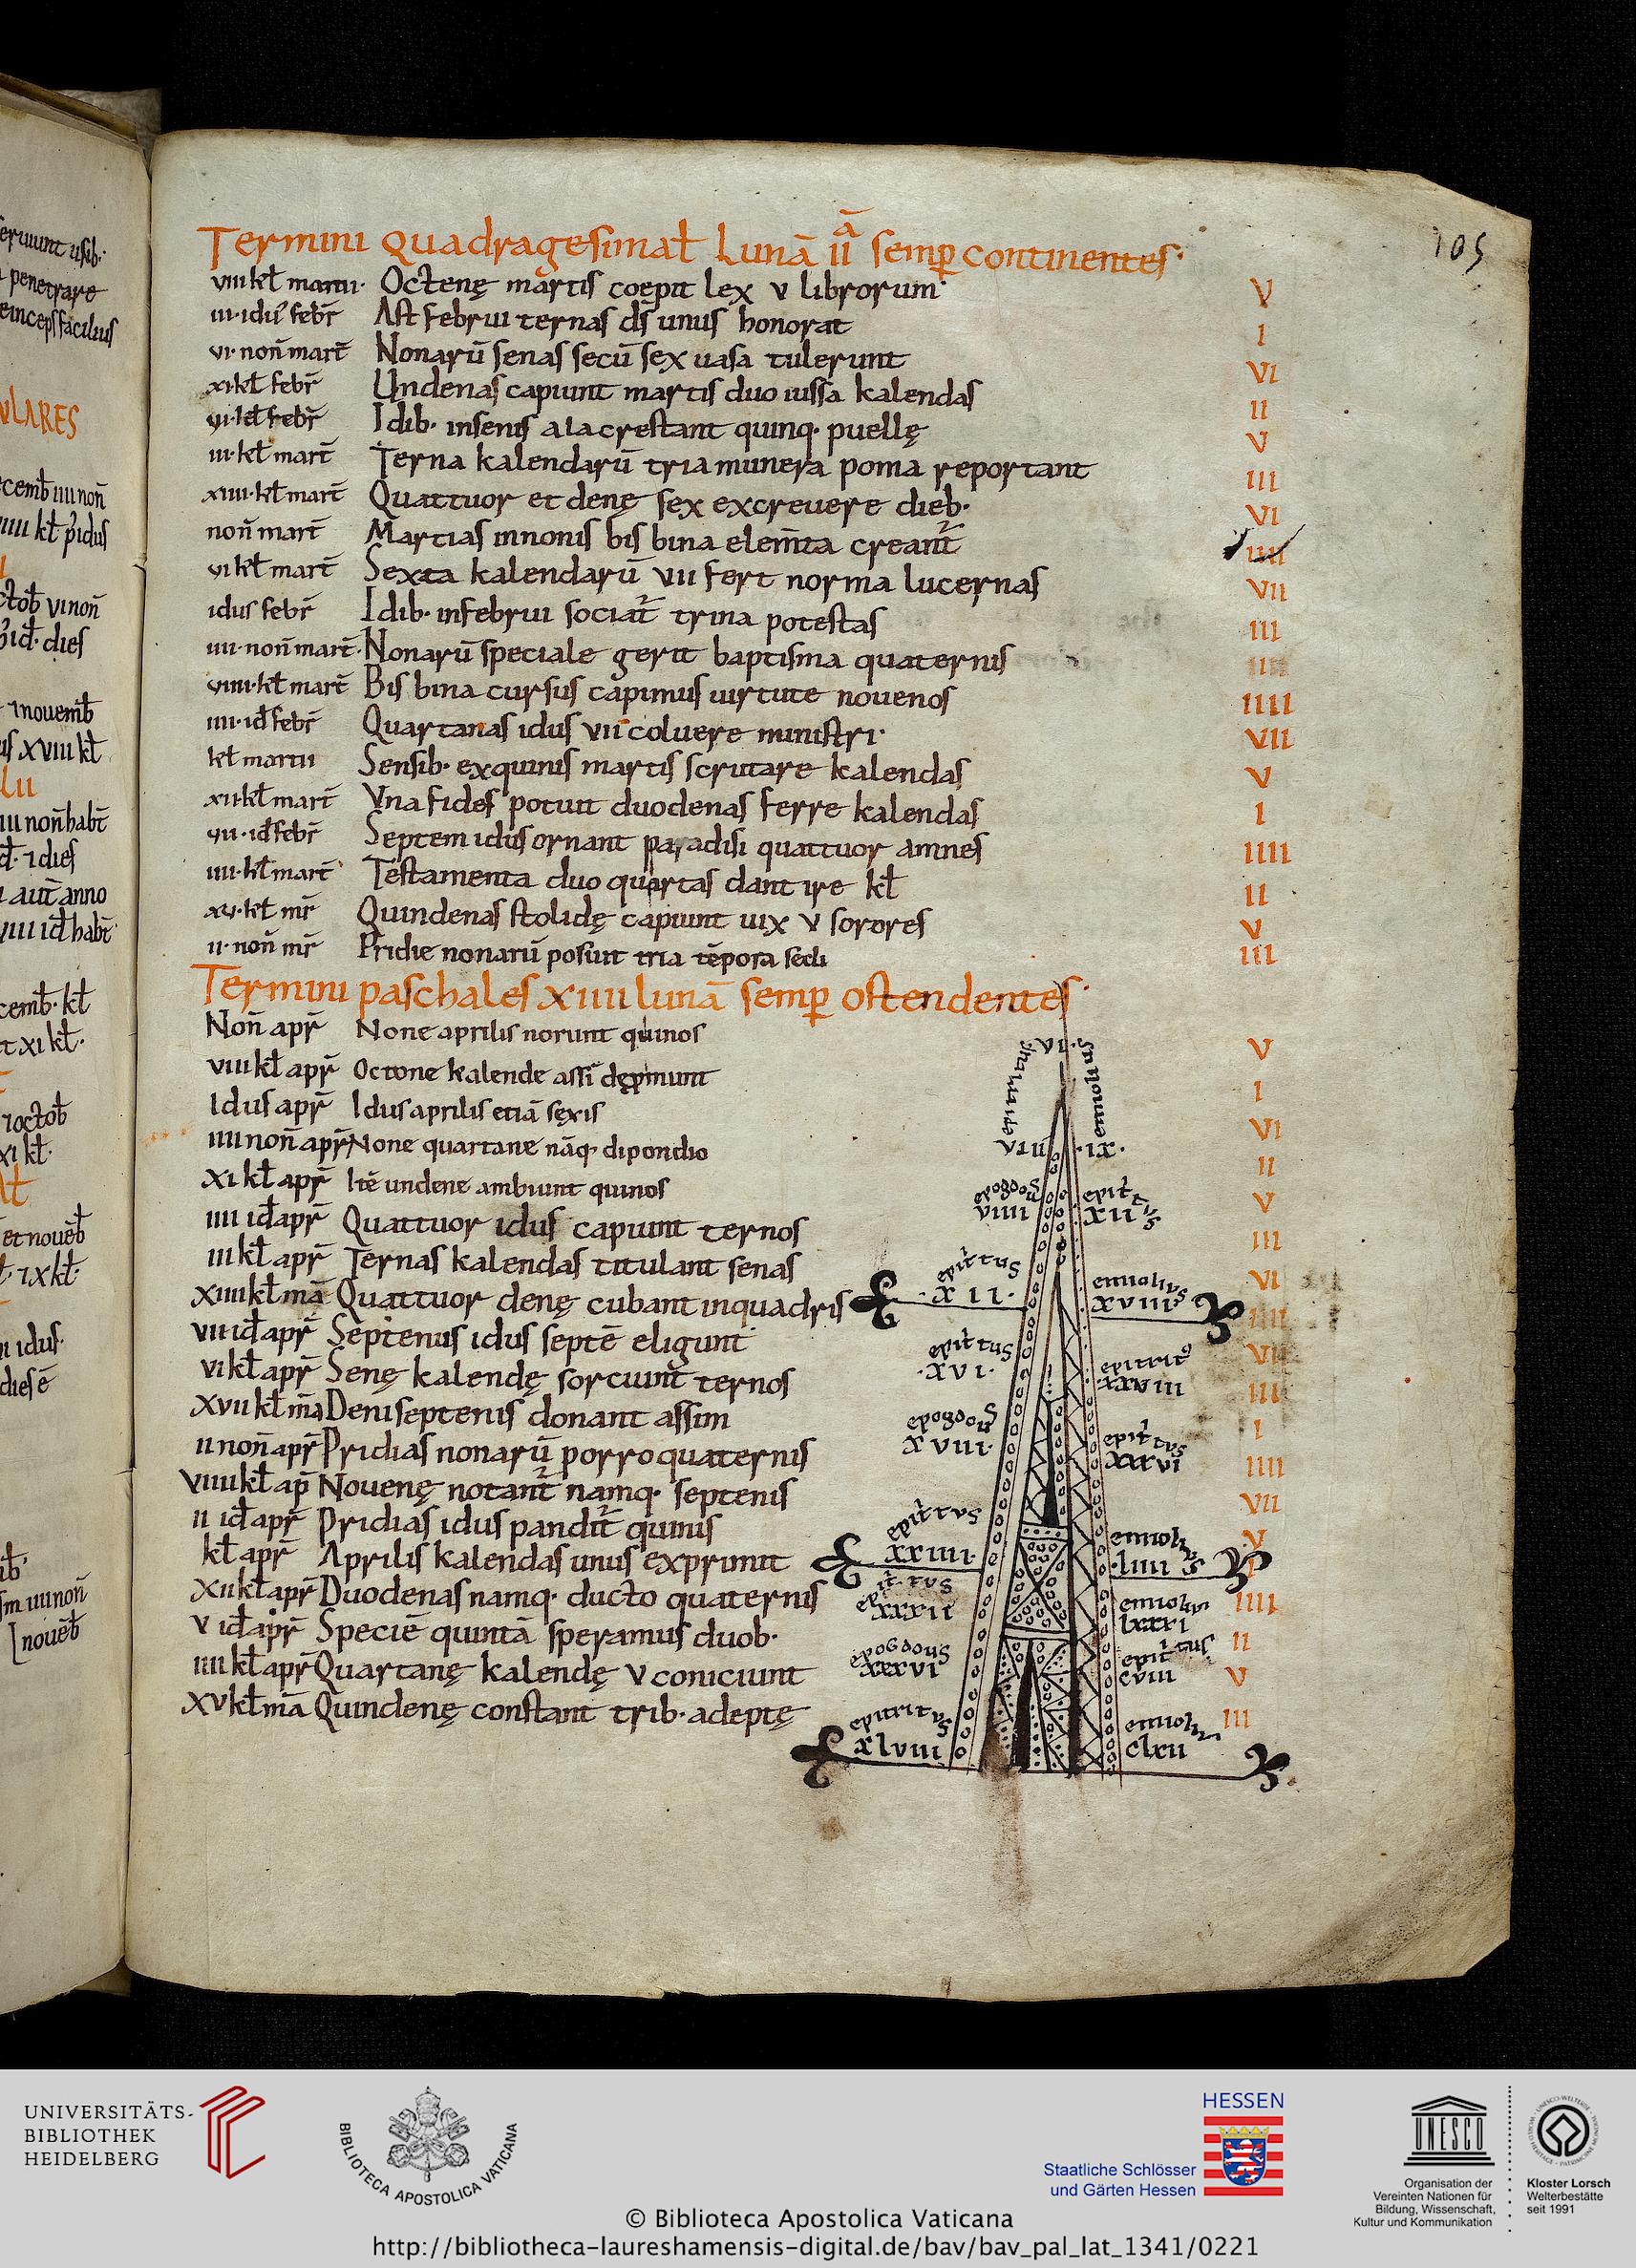 105
Termini quadragesimał Lunā iiā semꝑ continentes·
viii kł martii· Octenę martis coepit lex v librorum· V
iii·idus febr̄ Ast februi ternas ds̄ unus honorat I
vi·non̄ mart̄ Nonarū senas secū sex uasa tulerunt VI
xi kł febr̄ Undenas capiunt martis duo iussa kalendas II
vi·id febr̄ Idib· in senis ala crestant quinq· puellę V
iii·kł mart̄ Terna kalendarū tria munera poma reportant III
xiiii·kł mart̄ Quattuor et denę sex excreuere dieb· VI
non̄ mart̄ Martias in nonis bis bina elem̄ta creant̄ IIII
vi kł mart̄ Sexta kalendarū vii fert norma lucernas VII
idus febr̄ Idib· in februi sociat̄ trina potestas III
iiii·non̄ mart̄· Nonarū speciale gerit baptisma quaternis
viiii·kł mart̄ Bis bina cursus capimus uirtute nouenos IIII
iiii·id̄ febr̄ Quartanas idus vii coluere ministri· VII
kł martii Sensib· ex quinis martis scrutare kalendas V
xii·kł mart̄ Vna fides potuit duodenas ferre kalendas I
vii·id̄ febr̄ Septem idus ornant paradisi quattuor amnes IIII
iiii·kł mart̄ Testamenta duo quartas dant ire kł II
xv·kł mr̄ Quindenas stolidę capiunt uix v sorores V
ii·non̄ mr̄ Pridie nonarū posuit tria tēpora secli III
Termini paschales xiiii lunā semꝑ ostendentes·
Non̄ apr̄ None aprilis norunt quinos V
viii kł apr̄ Octone kalende assī depmunt I
Idus apr̄ Idus aprilis etiā sexis VI
iiii non̄ apr̄ None quartane nāq· dipondio II
xi kł apr̄ Itē undene ambiunt quinos V
iiii id̄ apr̄ Quattuor idus capiunt ternos III
iii kł apr̄ Ternas kalendas titulant senas VI
xiiii kł mā Quattuor denę cubant in quadris IIII
vii id̄ apr̄ Septenus idus septē eligunt VII
vi kł apr̄ Senę kalendę sorciunt̄ ternos III
xvii kł mā Deni septenis donant assim I
ii non̄ apr̄ Pridias nonarū porro quaternis IIII
viiii kł ap̄ Nouenę notant̄ namq· septenis VII
ii id̄ apr̄ Pridias idus pandit̄ quinis V
kł apr̄ Aprilis kalendas unus exprimit
xii kł apr̄ Duodenas namq· ducto quaternis IIII
v id̄ apr̄ Speciē quintā speramus duob· II
iiii kł apr̄ Quartanę kalendę v coniciunt V
xv kł mā Quindenę constant trib· adeptę III
·vi·
emiolius
viii ·ix·
epogdous epit̄tus
viiii xii
epit̄tus emiolius
·xii· xviii·
epit̄tus epitrit
·xvi·
epogdous epit̄tus
xviii· xxxvi
epit̄tus emiolius
xxiiii· ·liiii
epit̄tus emiolius
xxxii lxxxi
epogdous epit̄tus
xxxvi cviii
epitritus emiolius
xlviii clxii
UNIVERSITÄTS-
BIBLIOTHEK
HEIDELBERG
BIBLIOTECA APOSTOLICA VATICANA
HESSEN
Staatliche Schlösser
und Gärten Hessen
UNESCO
Organisation der
Vereinten Nationen für
Bildung, Wissenschaft,
Kultur und Kommunikation
Kloster Lorsch
Welterbestätte
seit 1991
© Biblioteca Apostolica Vaticana
http://bibliotheca-laureshamensis-digital.de/bav/bav_pal_lat_1341/0221